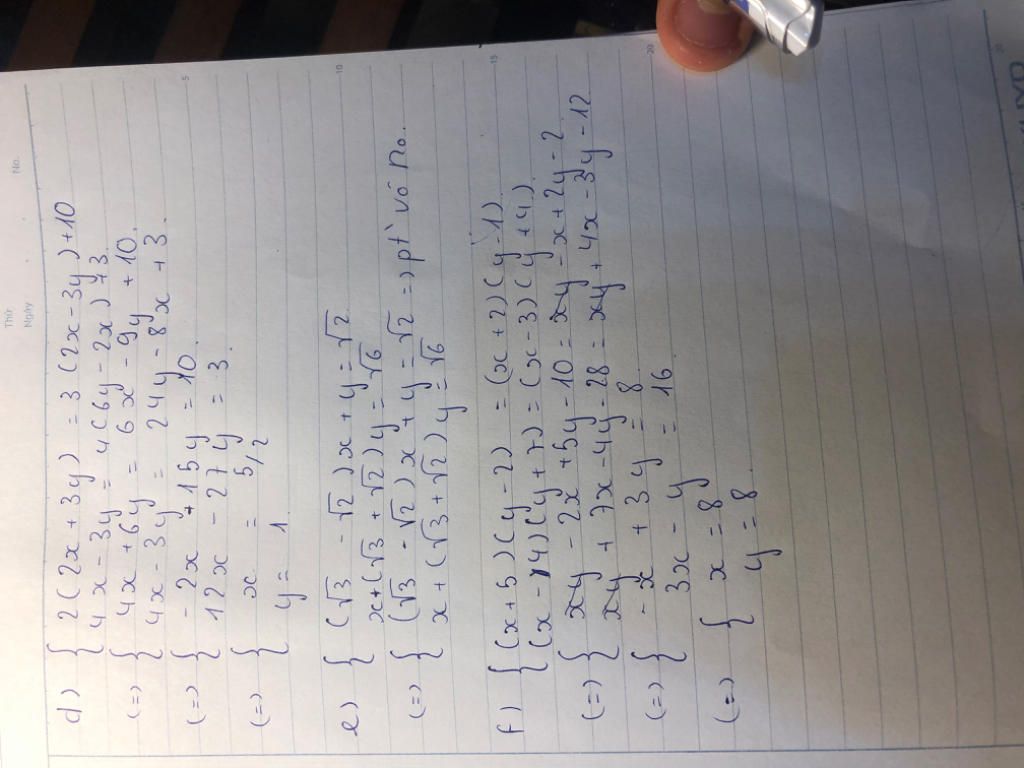 Thứ
Ngày
No.
d) { 2(2x + 3y) = 3(2x - 3y) + 10
4x - 3y = 4(6y - 2x) + 3
(=) { 4x + 6y = 6x - 9y + 10
4x - 3y = 24y - 8x + 3.
(=) { -2x + 15y = 10
12x - 27y = 3.
(=) { x = 5/2
y = 1
e) { (√3 - √2)x + y = √2
x + (√3 + √2)y = √6
(=) { (√3 - √2)x + y = √2 => pt vô no.
x + (√3 + √2)y = √6
f) { (x + 5)(y - 2) = (x + 2)(y - 1)
(x - 4)(y + 7) = (x - 3)(y + 4).
(=) { xy - 2x + 5y - 10 = xy - x + 2y - 2
xy + 7x - 4y - 28 = xy + 4x - 3y - 12
(=) { -x + 3y = 8
3x - y = 16
(=) { x = 8
y = 8
5
10
15
20